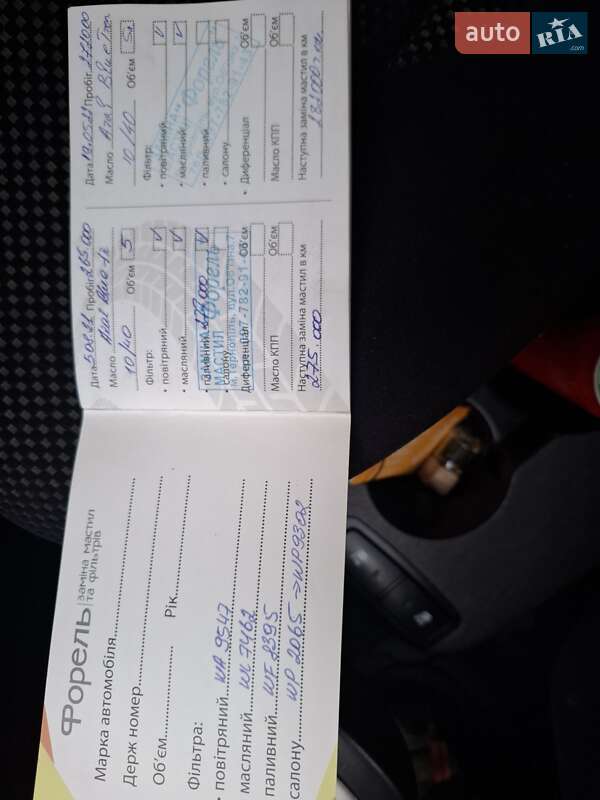 auto RIA.com
Форель заміна мастил
та фільтрів
Марка автомобіля
Держ номер
Об'єм Рік
Фільтра:
• повітряний WA 9547
масляний WL 7462
паливний WF 8395
салону WP 2065 -> WP9302
Дата Пробіг 265 000
Масло
10/40 Об'єм 5
Фільтр:
• повітряний V
• масляний V
• паливний V
• салону
Диференціал Об'єм
Масло КПП Об'єм
Наступна заміна мастил в км
275 000
МАСТИЛ Форель
Дата 19.05.22 Пробіг 272000
Масло
10/40 Об'єм
Фільтр:
• повітряний V
• масляний V
• паливний
• салону
• Диференціал Об'єм
Масло КПП Об'єм
Наступна заміна мастил в км
282000